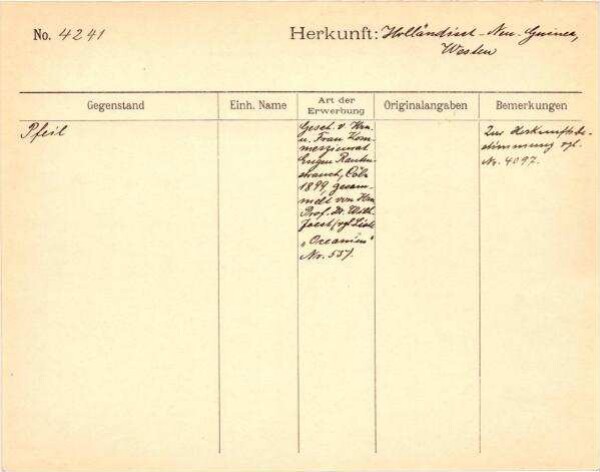 No. 4241
Herkunft: Holländisch-Neu-Guinea,
Westen
Gegenstand
Einh. Name
Art der
Erwerbung
Originalangaben
Bemerkungen
Pfeil
Gesch. v. Hrn.
u. Frau Kom-
merzienrat
Eugen Rauten-
strauch, Cöln
1899, gesam-
melt von Hrn.
Prof. Dr. Wilh.
Joest (vgl. Liste
„Oceanien"
Nr. 557.
Zur Herkunftsbe-
stimmung vgl.
Nr. 4097.